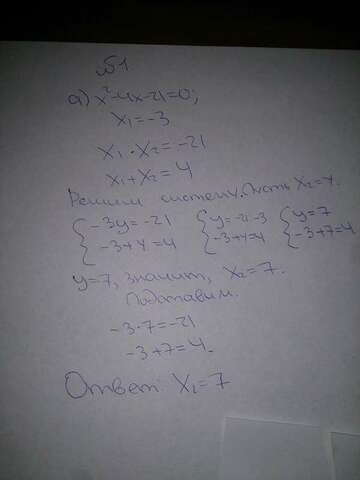 №1
а) x²-4x-21=0;
x₁=-3
x₁·x₂=-21
x₁+x₂=4
Решим систему. Пусть x₂=y.
{-3y=-21 {y=-21:-3 {y=7
{-3+y=4 {-3+y=4 {-3+7=4
y=7, значит, x₂=7.
Подставим.
-3·7=-21
-3+7=4.
Ответ: x₂=7